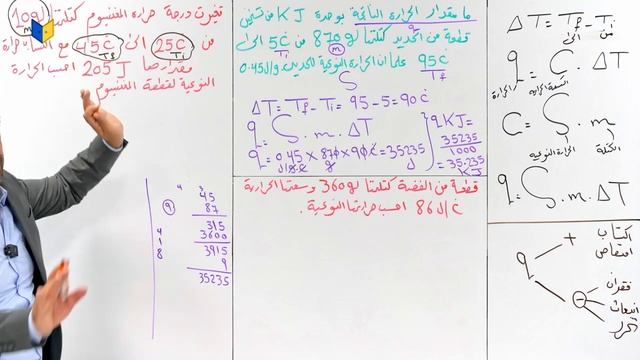 تغيرت درجة حرارة المغنسيوم كتلتها 10g
m
من 25C الى 45C مع اكتساب حرارة
Ti Tf
مقدارها 205J احسب الحرارة
النوعية لقطعة المغنسيوم
ما مقدار الحرارة الناتجة بوحدة KJ من تسخين
q
قطعة من الحديد كتلتها 870g من 5C الى
m Ti
95C علما ان الحرارة النوعية للحديد 0.45
Tf
ΔT = Tf - Ti = 95 - 5 = 90C
q = ζ . m . ΔT
q = 0.45 × 870 × 90 = 35235
J
q KJ =
35235
1000
= 35.235
KJ
قطعة من الفضة كتلتها 360g وسعتها الحرارية
86 J/C احسب حرارتها النوعية.
45
87
315
3600
3915
9
35235
ΔT = Tf - Ti
الى من
q = C . ΔT
السعة الحرارية
الحرارة
C = ζ . m
الكتلة
الحرارة النوعية
q = ζ . m . ΔT
q
+
اكتساب
امتصاص
-
فقدان
انبعاث
تحرر